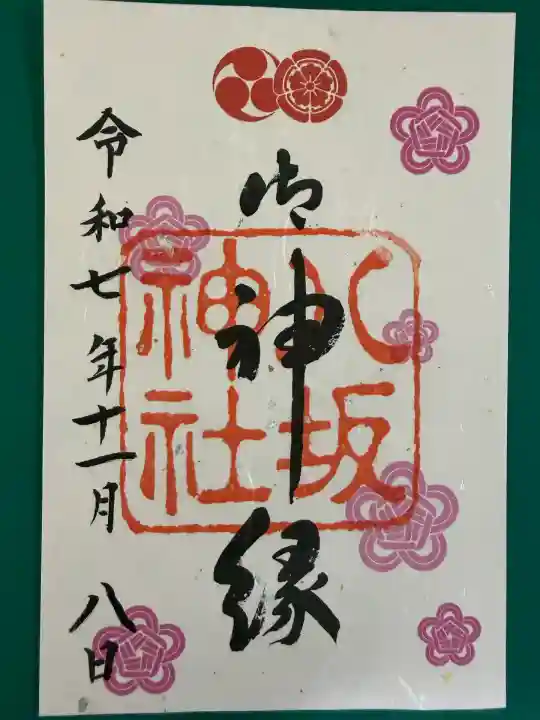 御神縁
八坂
神社
令和七年十一月八日